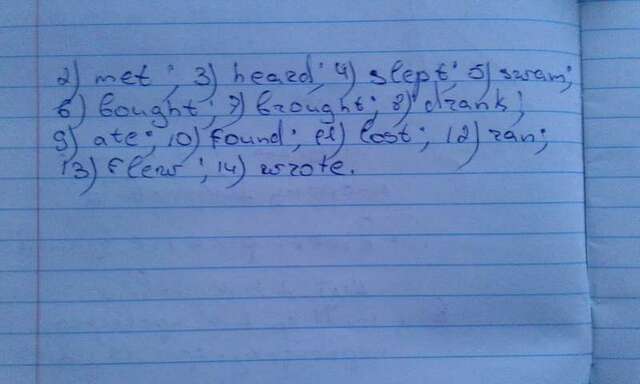 2) met; 3) heard; 4) slept; 5) swam;
6) bought; 7) brought; 8) drank;
9) ate; 10) found; 11) lost; 12) ran;
13) flew; 14) wrote.